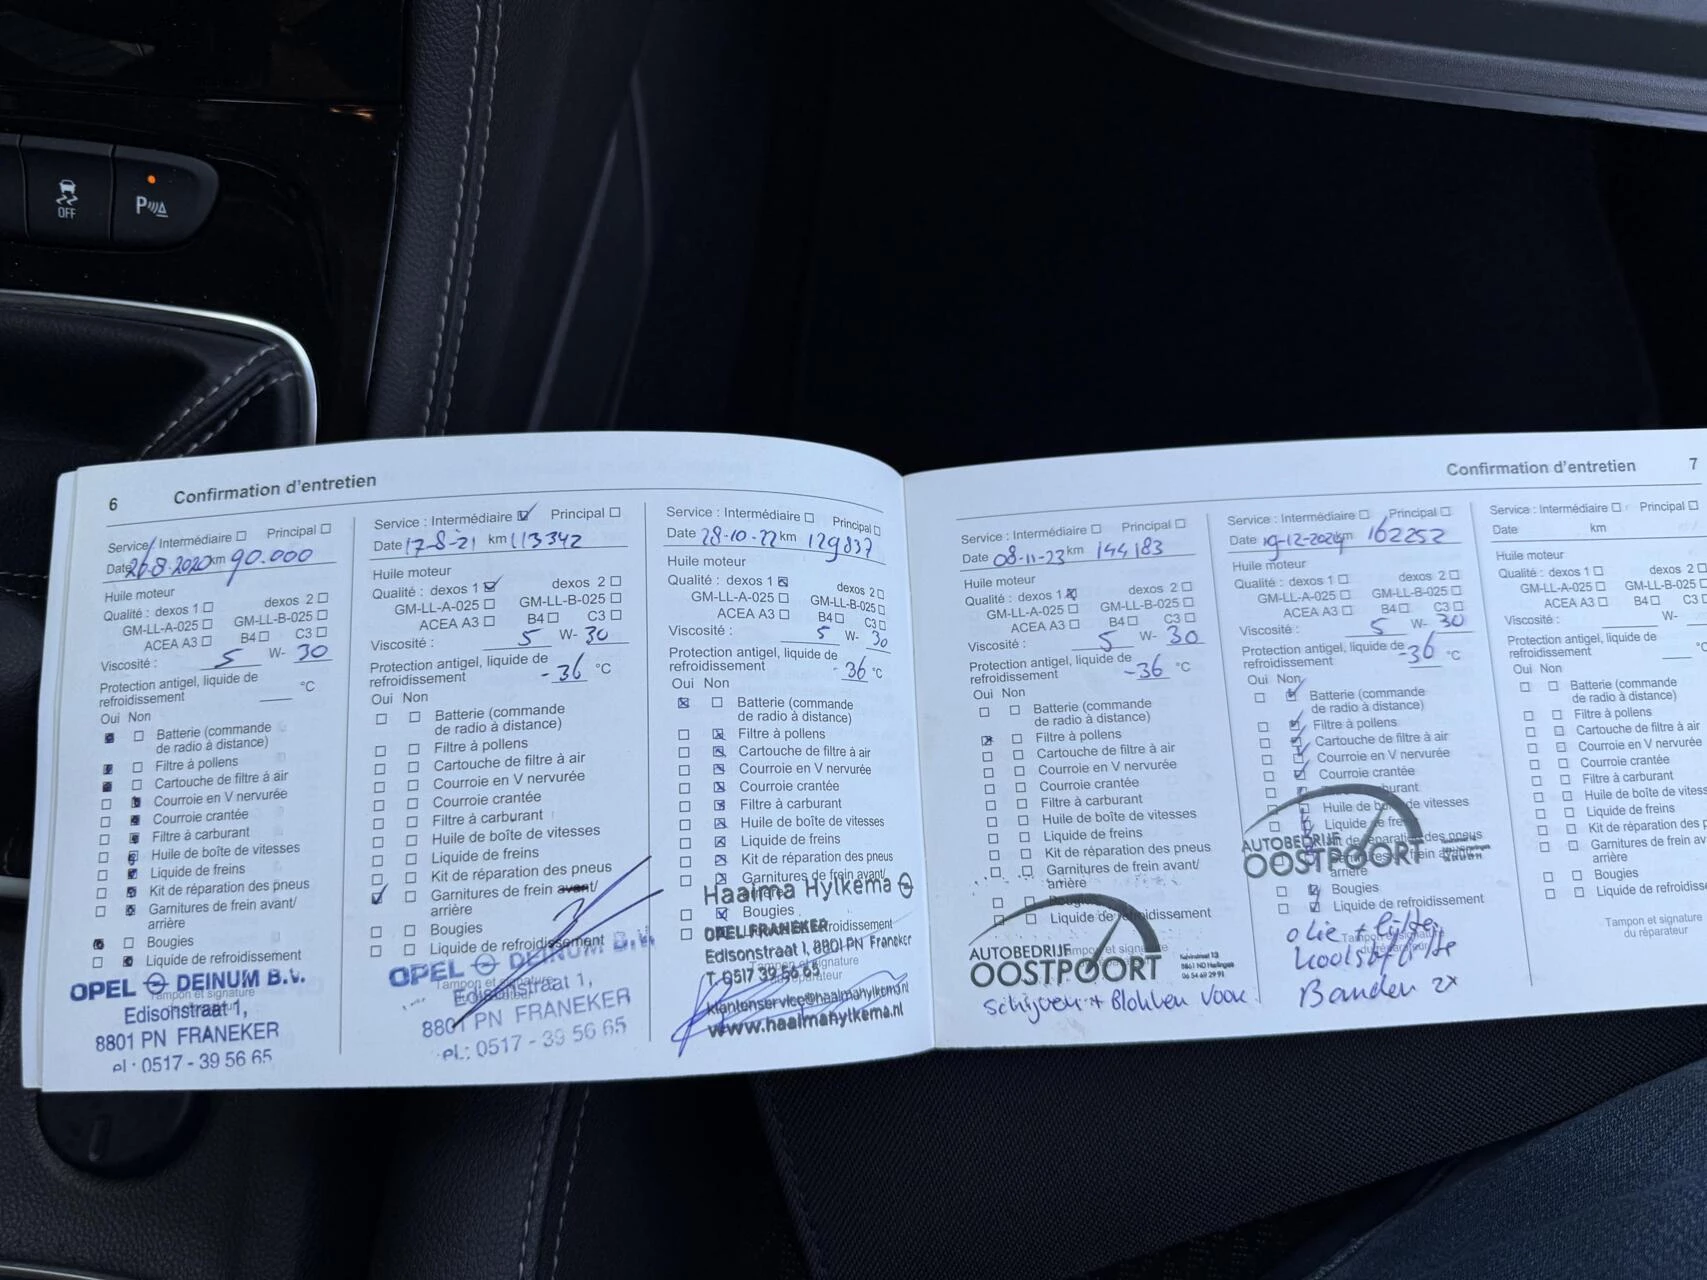 OFF
P
6
Confirmation d'entretien
Service : Intermédiaire Principal
Date 26-8-2020 km 90.000
Huile moteur
Qualité : dexos 1 dexos 2
GM-LL-A-025 GM-LL-B-025
ACEA A3 B4 C3
Viscosité : 5 W- 30
Protection antigel, liquide de
refroidissement °C
Oui Non
Batterie (commande
de radio à distance)
Filtre à pollens
Cartouche de filtre à air
Courroie en V nervurée
Courroie crantée
Filtre à carburant
Huile de boîte de vitesses
Liquide de freins
Kit de réparation des pneus
Garnitures de frein avant/
arrière
Bougies
Liquide de refroidissement
Tampon et signature
OPEL DEINUM B.V.
Edisonstraat 1,
8801 PN FRANEKER
el : 0517 - 39 56 65
Service : Intermédiaire Principal
Date 17-8-21 km 113342
Huile moteur
Qualité : dexos 1 dexos 2
GM-LL-A-025 GM-LL-B-025
ACEA A3 B4 C3
Viscosité : 5 W- 30
Protection antigel, liquide de
refroidissement -36 °C
Oui Non
Batterie (commande
de radio à distance)
Filtre à pollens
Cartouche de filtre à air
Courroie en V nervurée
Courroie crantée
Filtre à carburant
Huile de boîte de vitesses
Liquide de freins
Kit de réparation des pneus
Garnitures de frein avant/
arrière
Bougies
Liquide de refroidissement
OPEL DEINUM B.V.
Edisonstraat 1,
8801 PN FRANEKER
el.: 0517 - 39 56 65
Service : Intermédiaire Principal
Date 28-10-22 km 129837
Huile moteur
Qualité : dexos 1 dexos 2
GM-LL-A-025 GM-LL-B-025
ACEA A3 B4 C3
Viscosité : 5 W- 30
Protection antigel, liquide de
refroidissement -36 °C
Oui Non
Batterie (commande
de radio à distance)
Filtre à pollens
Cartouche de filtre à air
Courroie en V nervurée
Courroie crantée
Filtre à carburant
Huile de boîte de vitesses
Liquide de freins
Kit de réparation des pneus
Garnitures de frein avant/
arrière
Haaima Hylkema
Bougies
OPEL FRANEKER
Edisonstraat 1, 8801 PN Franeker
T. 0517 39 56 65
klantenservice@haaimahylkema.nl
www.haaimahylkema.nl
Confirmation d'entretien 7
Service : Intermédiaire Principal
Date 08-11-23 km 144183
Huile moteur
Qualité : dexos 1 dexos 2
GM-LL-A-025 GM-LL-B-025
ACEA A3 B4 C3
Viscosité : 5 W- 30
Protection antigel, liquide de
refroidissement -36 °C
Oui Non
Batterie (commande
de radio à distance)
Filtre à pollens
Cartouche de filtre à air
Courroie en V nervurée
Courroie crantée
Filtre à carburant
Huile de boîte de vitesses
Liquide de freins
Kit de réparation des pneus
Garnitures de frein avant/
arrière
Bougies
Liquide de refroidissement
AUTOBEDRIJF
OOSTPOORT
Schijven + Blokken Voor
Service : Intermédiaire Principal
Date 19-12-2024 km 162252
Huile moteur
Qualité : dexos 1 dexos 2
GM-LL-A-025 GM-LL-B-025
ACEA A3 B4 C3
Viscosité : 5 W- 30
Protection antigel, liquide de
refroidissement -36 °C
Oui Non
Batterie (commande
de radio à distance)
Filtre à pollens
Cartouche de filtre à air
Courroie en V nervurée
Courroie crantée
Huile de boîte de vitesses
AUTOBEDRIJF
OOSTPOORT
arrière
Bougies
Liquide de refroidissement
olie +
Banden 2x
Service : Intermédiaire Principal
Date km
Huile moteur
Qualité : dexos 1 dexos 2
GM-LL-A-025 GM-LL-B-025
ACEA A3 B4 C3
Viscosité : W-
Protection antigel, liquide de
refroidissement °C
Oui Non
Batterie (commande
de radio à distance)
Filtre à pollens
Cartouche de filtre à air
Courroie en V nervurée
Courroie crantée
Filtre à carburant
Huile de boîte de vitess
Liquide de freins
Kit de réparation des p
Garnitures de frein av
arrière
Bougies
Liquide de refroidisse
Tampon et signature
du réparateur